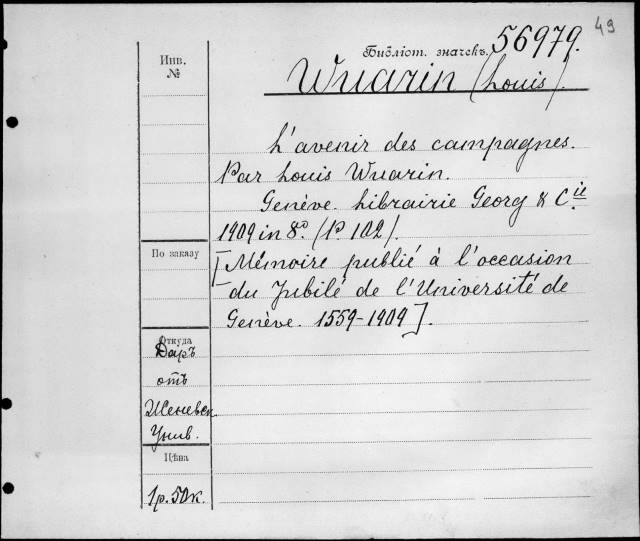 49
Библіот. значекъ. 56979.
Wuarin (Louis).
Инв.
№
L'avenir des campagnes.
Par Louis Wuarin.
Genève. Librairie Georg & Cie.
1909 in 8º (P. 102).
По заказу
[Mémoire publié à l'occasion
du Jubilé de l'Université de
Genève. 1559-1909].
Откуда
Даръ
отъ
Женевск.
Унив.
Цѣна
1р. 50к.